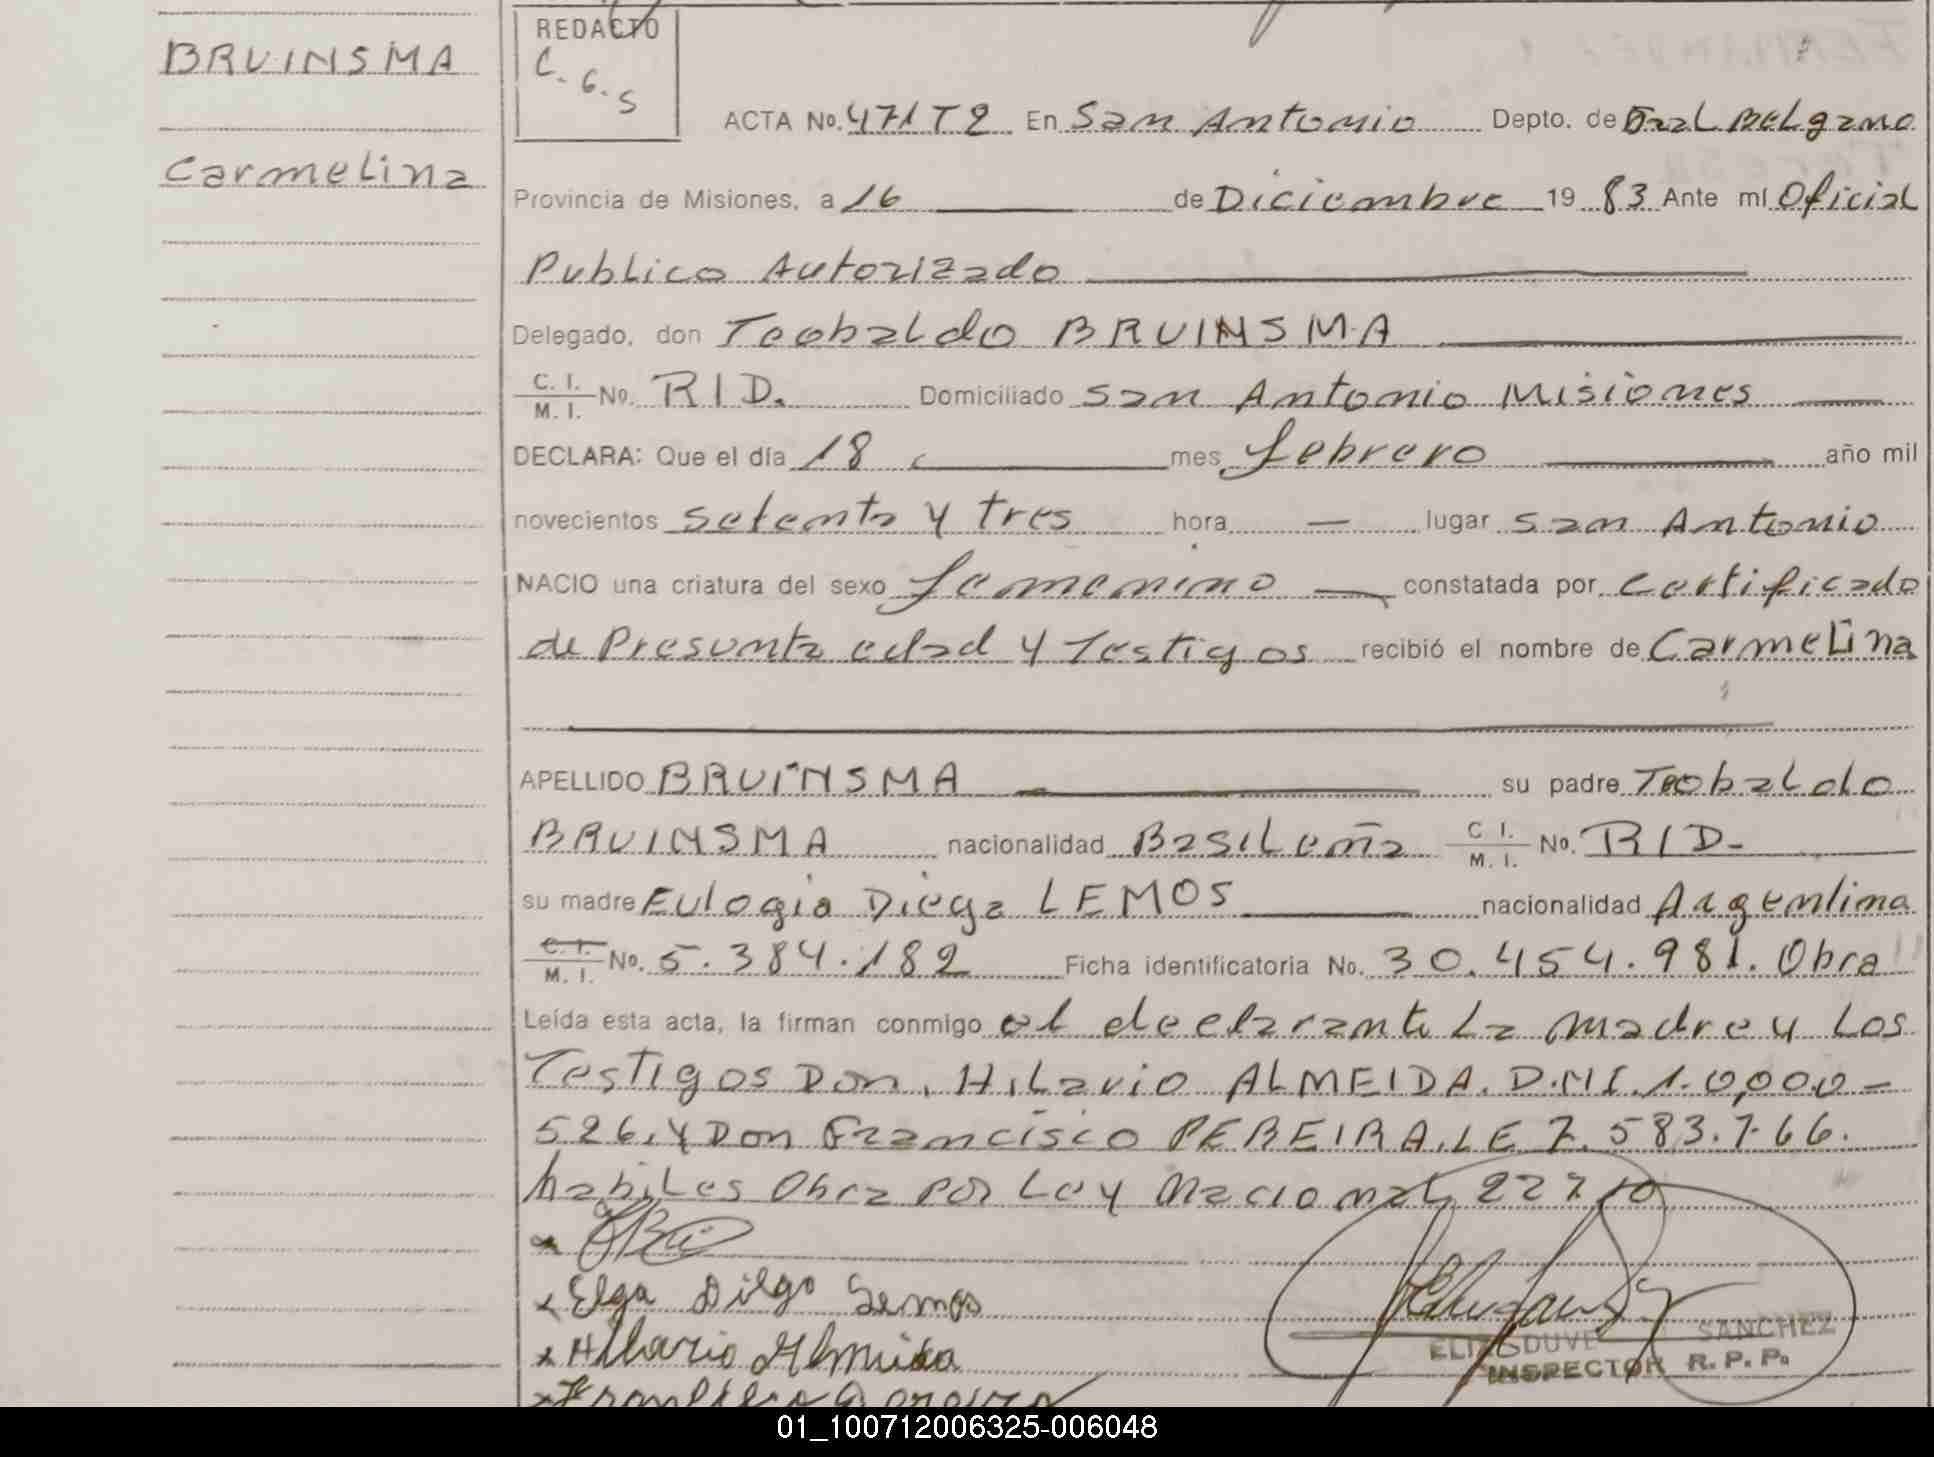 BRUINSMA
Carmelina
REDACTO
C. G. S
ACTA No. 471 T 2 En San Antonio Depto. de Gral Belgrano
Provincia de Misiones, a 16 de Diciembre 19 83 Ante mi Oficial
Publico Autorizado
Delegado, don Teobaldo BRUINSMA
C. I. / M. I. No. R I D. Domiciliado San Antonio Misiones
DECLARA: Que el día 18 mes febrero año mil
novecientos setenta y tres hora — lugar San Antonio
NACIO una criatura del sexo femenino constatada por certificado
de Presunta edad y Testigos recibió el nombre de Carmelina
APELLIDO BRUINSMA su padre Teobaldo
BRUINSMA nacionalidad Basileña C I. / M. I. No. R I D.
su madre Eulogia Diega LEMOS nacionalidad Argentina
C. I. / M. I. No. 5.384.182 Ficha identificatoria No. 30.454.981. Obra
Leída esta acta, la firman conmigo el declarante La madre y Los
Testigos Don. Hilario ALMEIDA. D.N.I. 1.0,000-
526. y Don Francisco PEREIRA. LE 7.583.766.
habiles Obra por Ley Nacional 22710
x Elga Diego Lemos
x Hilario Almeida
x Francisco Pereira
ELIZ DUVE SANCHEZ
INSPECTOR R. P. P.
01_100712006325-006048